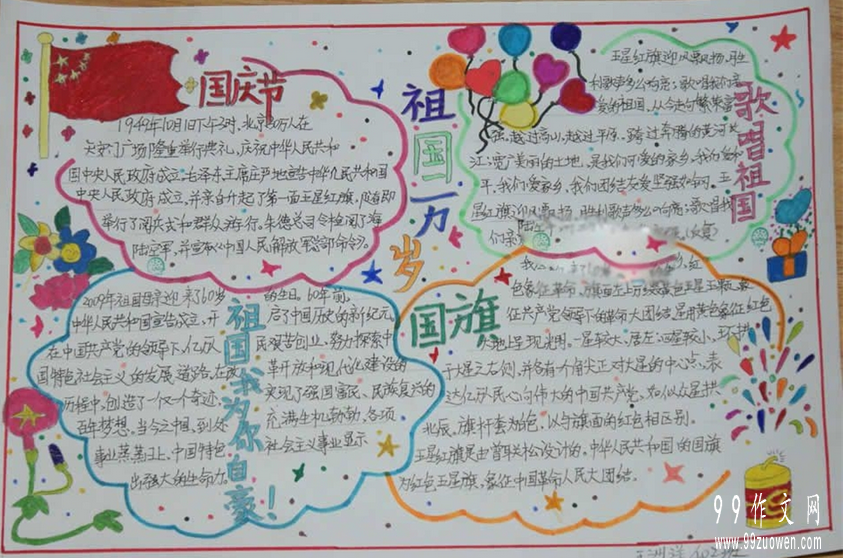 国庆节
1949年10月1日下午3时,北京30万人在
天安门广场隆重举行典礼,庆祝中华人民共和
国中央人民政府成立。毛泽东主席庄严地宣告中华人民共和国
中央人民政府成立,并亲自升起了第一面五星红旗,随即
举行了阅兵式和群众游行。朱德总司令检阅了海
陆空军,并宣布《中国人民解放军总部命令》。
祖国万岁
歌唱祖国
五星红旗迎风飘扬,胜
利歌声多么响亮;歌唱我们亲
爱的祖国,从今走向繁荣富
强。越过高山,越过平原,跨过奔腾的黄河长
江;宽广美丽的土地,是我们可爱的家乡。我们爱和
平,我们爱家乡,我们团结友爱坚强如钢。五
星红旗迎风飘扬,胜利歌声多么响亮;歌唱我
们亲
祖国我为你自豪!
2009年祖国母亲迎来了60岁的生日。60年前,
中华人民共和国宣告成立,开启了中国历史的新纪元,
在中国共产党的领导下,亿万民艰苦创业,努力探索中
国特色社会主义的发展道路,在改革开放和现代化建设的
历程中,创造了一个又一个奇迹,实现了强国富民、民族复兴的
百年梦想。当今中国,到处充满生机勃勃,各项
事业蒸蒸日上,中国特色社会主义事业显示
出强大的生命力。
国旗
红
色象征革命,旗面左上方缀黄色五星五颗,象
征共产党领导下的革命大团结,星用黄色象征红色
地上呈现光明。一星较大,居左,四星较小,环拱
于大星之右侧,并各有一个角尖正对大星的中心点,表
达亿万人民心向伟大的中国共产党,如似众星拱
北辰。旗杆套为白色,以与旗面的红色相区别。
五星红旗是由曾联松设计的。中华人民共和国的国旗
为红色五星旗,象征中国革命人民大团结。
99作文网
www.99zuowen.com